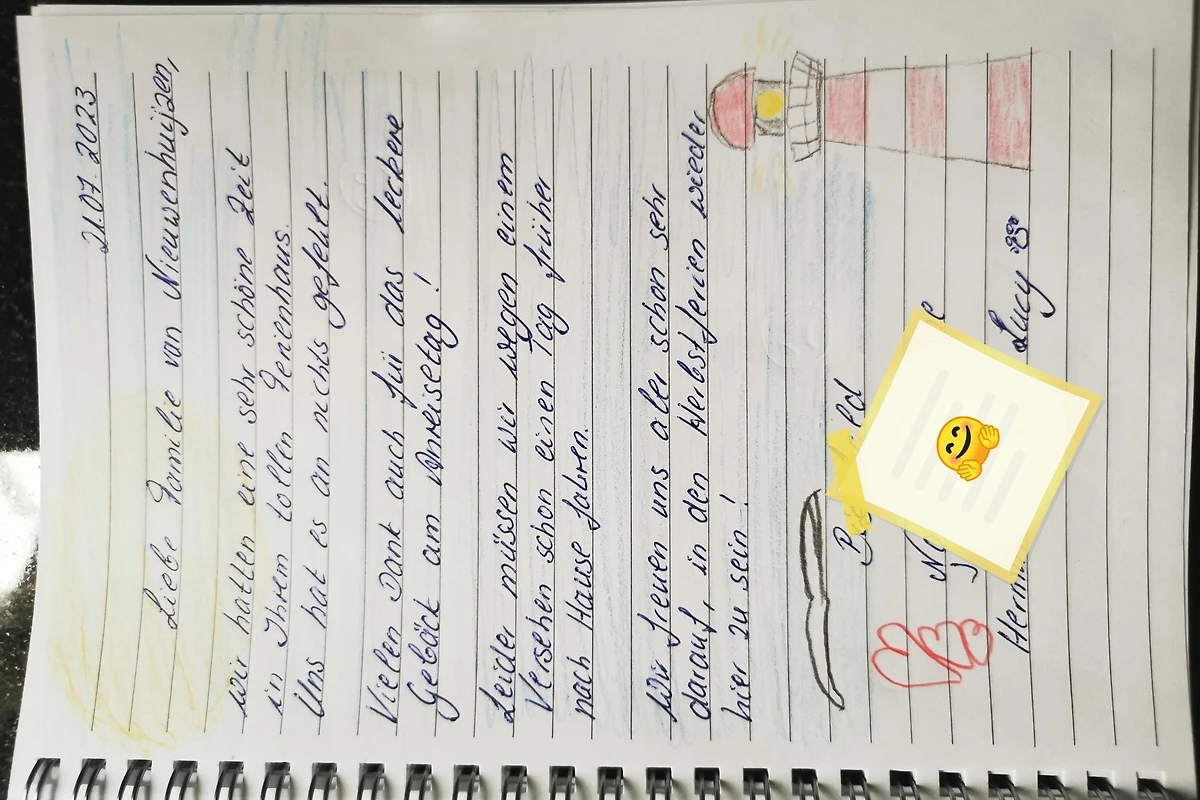 21.07.2023
Liebe Familie van Nieuwenhuijzen,
wir hatten eine sehr schöne Zeit
in Ihrem tollen Ferienhaus.
Uns hat es an nichts gefehlt.
Vielen Dank auch für das leckere
Gebäck am Anreisetag!
Leider müssen wir wegen einem
Versehen schon einen Tag früher
nach Hause fahren.
Wir freuen uns aber schon sehr
darauf, in den Herbstferien wieder
hier zu sein!
Lucy